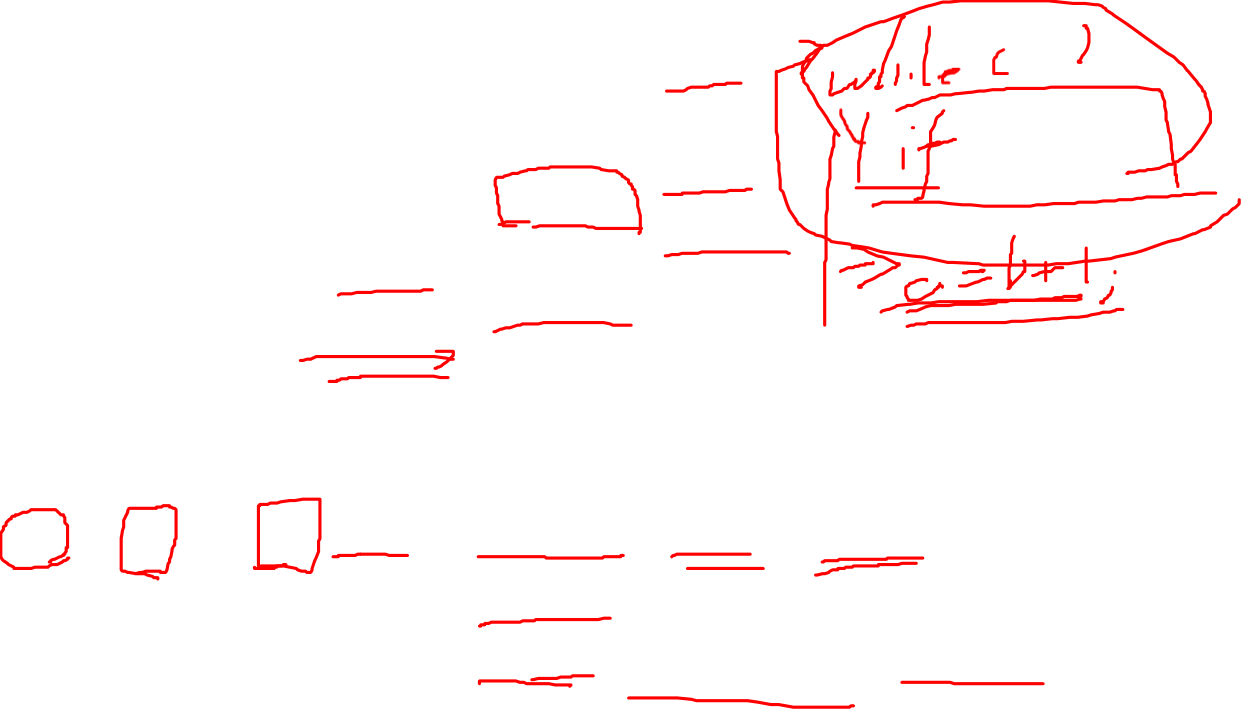 while ( )
if
a = b + 1 ;